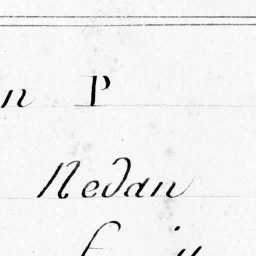 n P
Nedan